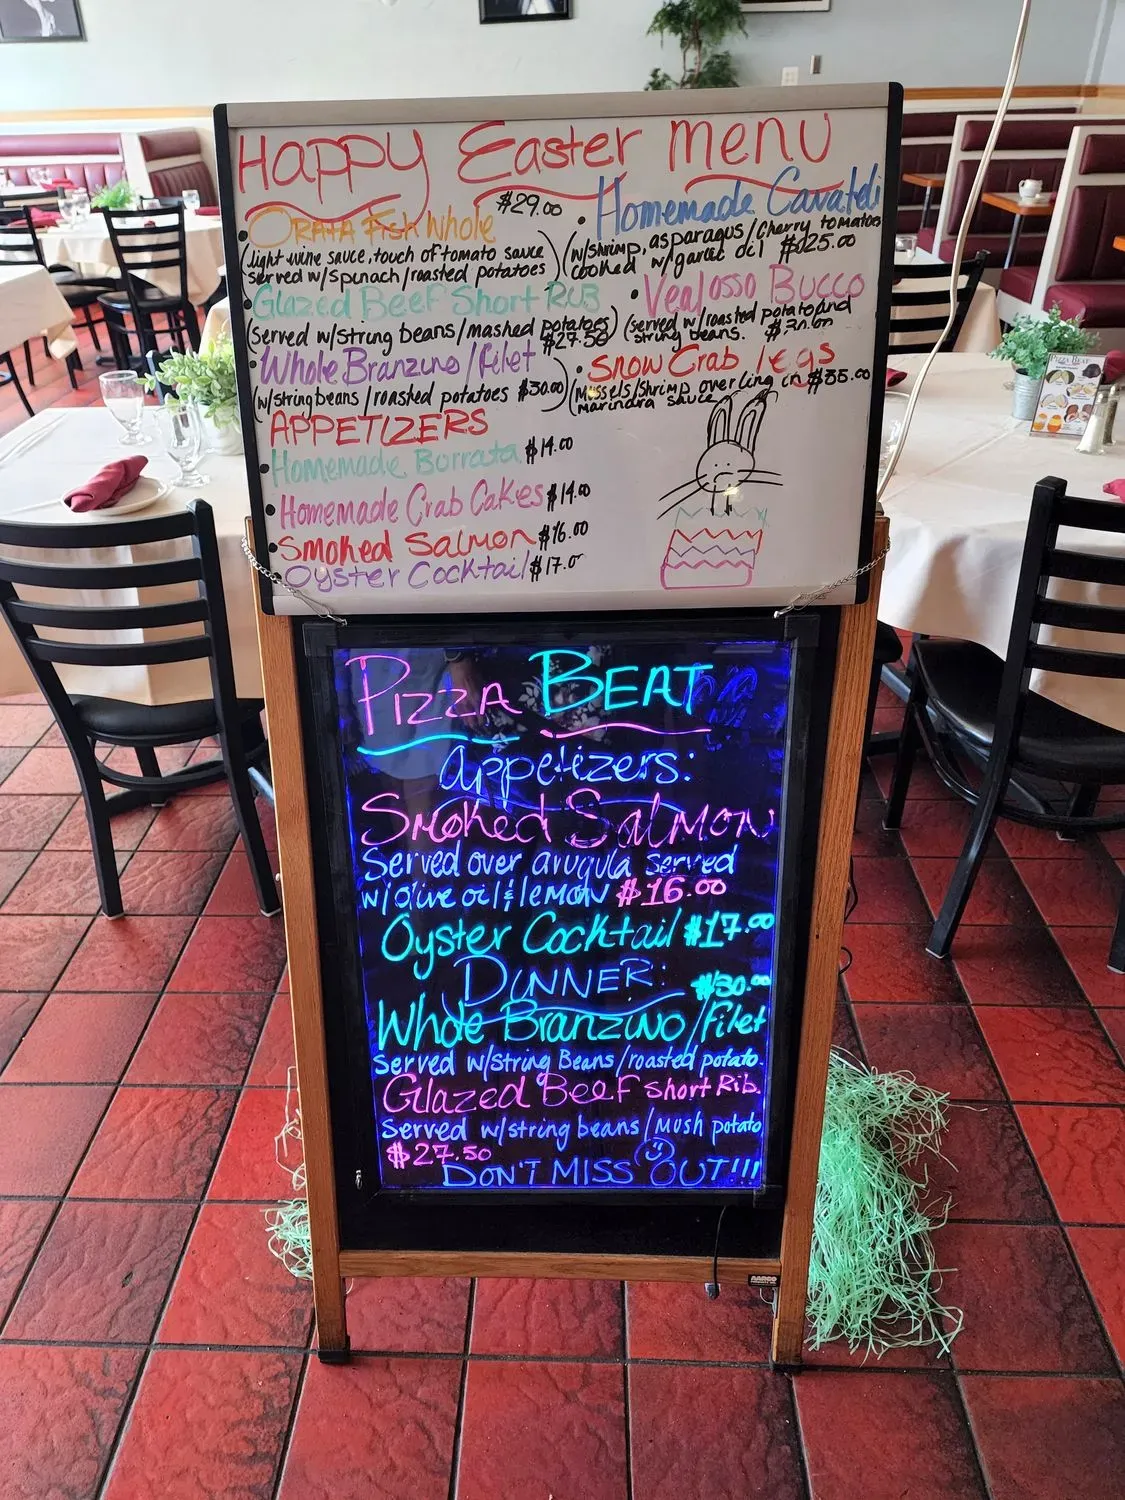 Happy Easter menu
• ORATA Fish Whole $29.00
(light wine sauce, touch of tomato sauce
served w/spinach/roasted potatoes)
• Glazed Beef Short RUB
(served w/string beans/mashed potatoes)
$27.50
• Whole Branzino/filet
(w/string beans/roasted potatoes $30.00)
• Homemade Cavateli
(w/shrimp, asparagus/cherry tomatoes
cooked w/garlic oil $25.00
• Veal osso Bucco
(served w/roasted potato and
string beans.
• Snow Crab legs
(mussels/shrimp over ling in $35.00
marindra sauce
APPETIZERS
• Homemade Burrata $14.00
• Homemade Crab Cakes $14.00
• Smoked Salmon $16.00
Oyster Cocktail $17.0
STAPLES
PIZZA BEAT
appetizers:
Smoked Salmon
Served over arugula served
w/olive oil & lemon $16.00
Oyster Cocktail $17.00
DINNER:
$30.00
Whole Branzino/filet
Served w/String Beans/roasted potato.
Glazed Beef Short Rib.
Served w/string beans/mush potato
$27.50
DON'T MISS OUT!!!
AARCO
PIZZA BEAT